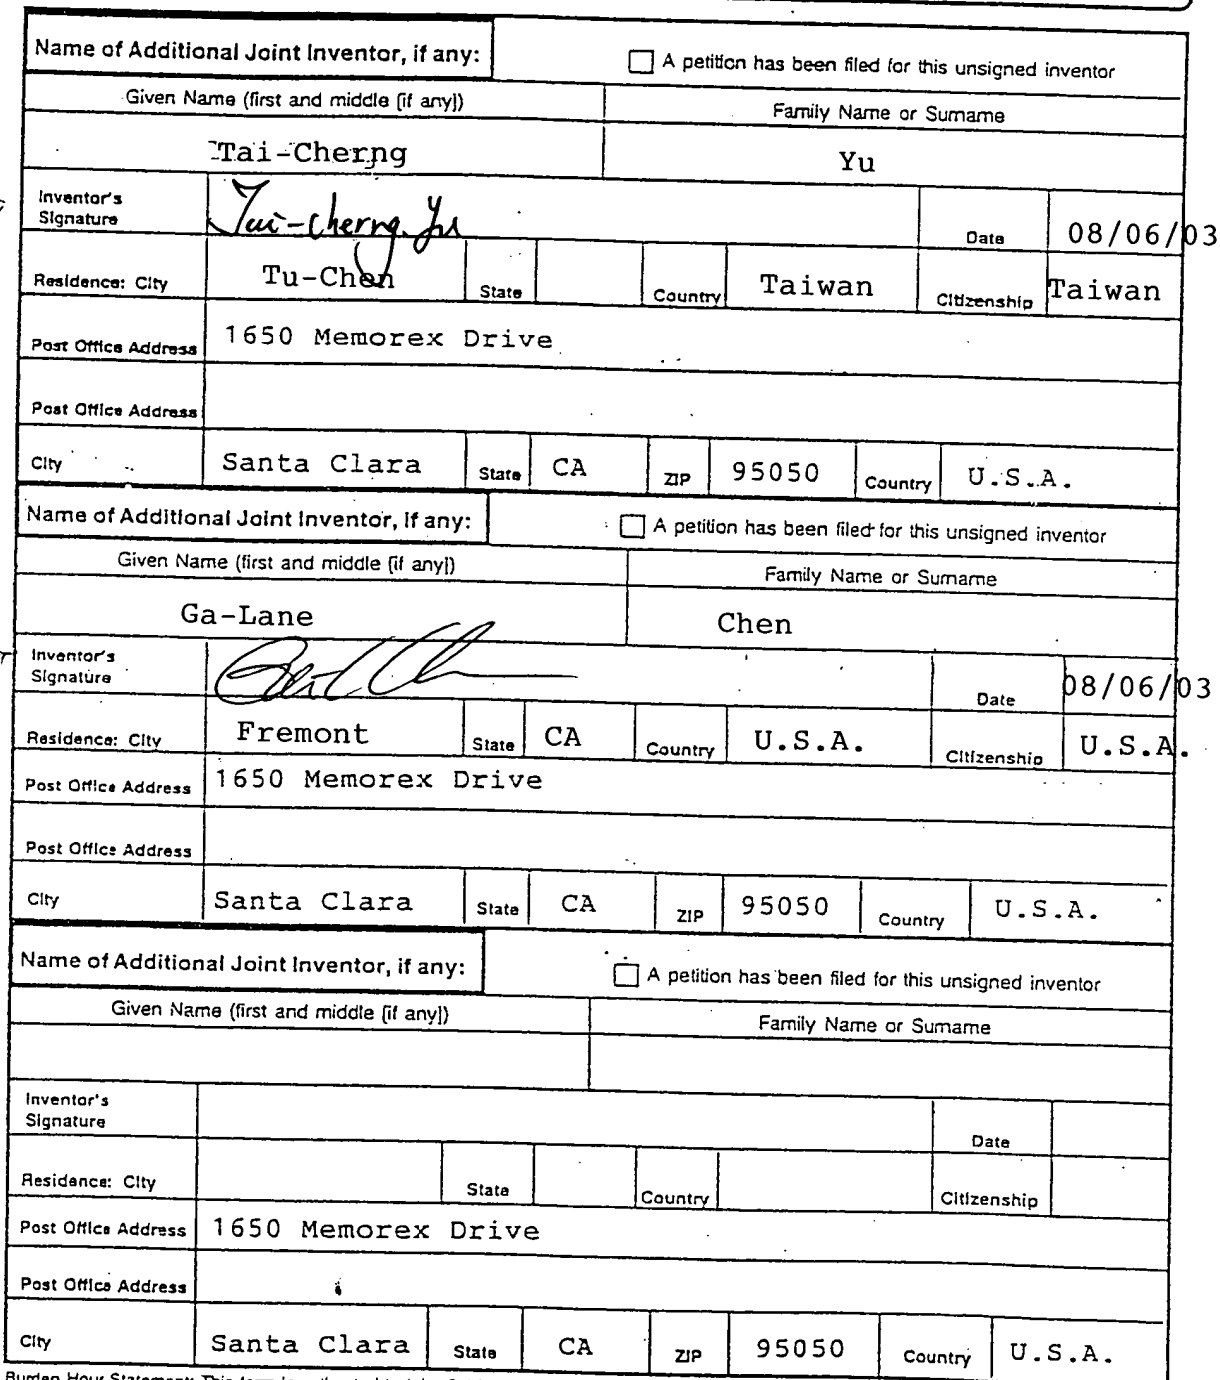 Name of Additional Joint Inventor, if any: A petition has been filed for this unsigned inventor
Given Name (first and middle [if any]) Family Name or Surname
Tai-Cherng Yu
Inventor's Signature Tai-cherng Yu Date 08/06/03
Residence: City Tu-Chen State Country Taiwan Citizenship Taiwan
Post Office Address 1650 Memorex Drive
Post Office Address
City Santa Clara State CA ZIP 95050 Country U.S.A.
Name of Additional Joint Inventor, if any: A petition has been filed for this unsigned inventor
Given Name (first and middle [if any]) Family Name or Surname
Ga-Lane Chen
Inventor's Signature Date 08/06/03
Residence: City Fremont State CA Country U.S.A. Citizenship U.S.A.
Post Office Address 1650 Memorex Drive
Post Office Address
City Santa Clara State CA ZIP 95050 Country U.S.A.
Name of Additional Joint Inventor, if any: A petition has been filed for this unsigned inventor
Given Name (first and middle [if any]) Family Name or Surname
Inventor's Signature Date
Residence: City State Country Citizenship
Post Office Address 1650 Memorex Drive
Post Office Address
City Santa Clara State CA ZIP 95050 Country U.S.A.